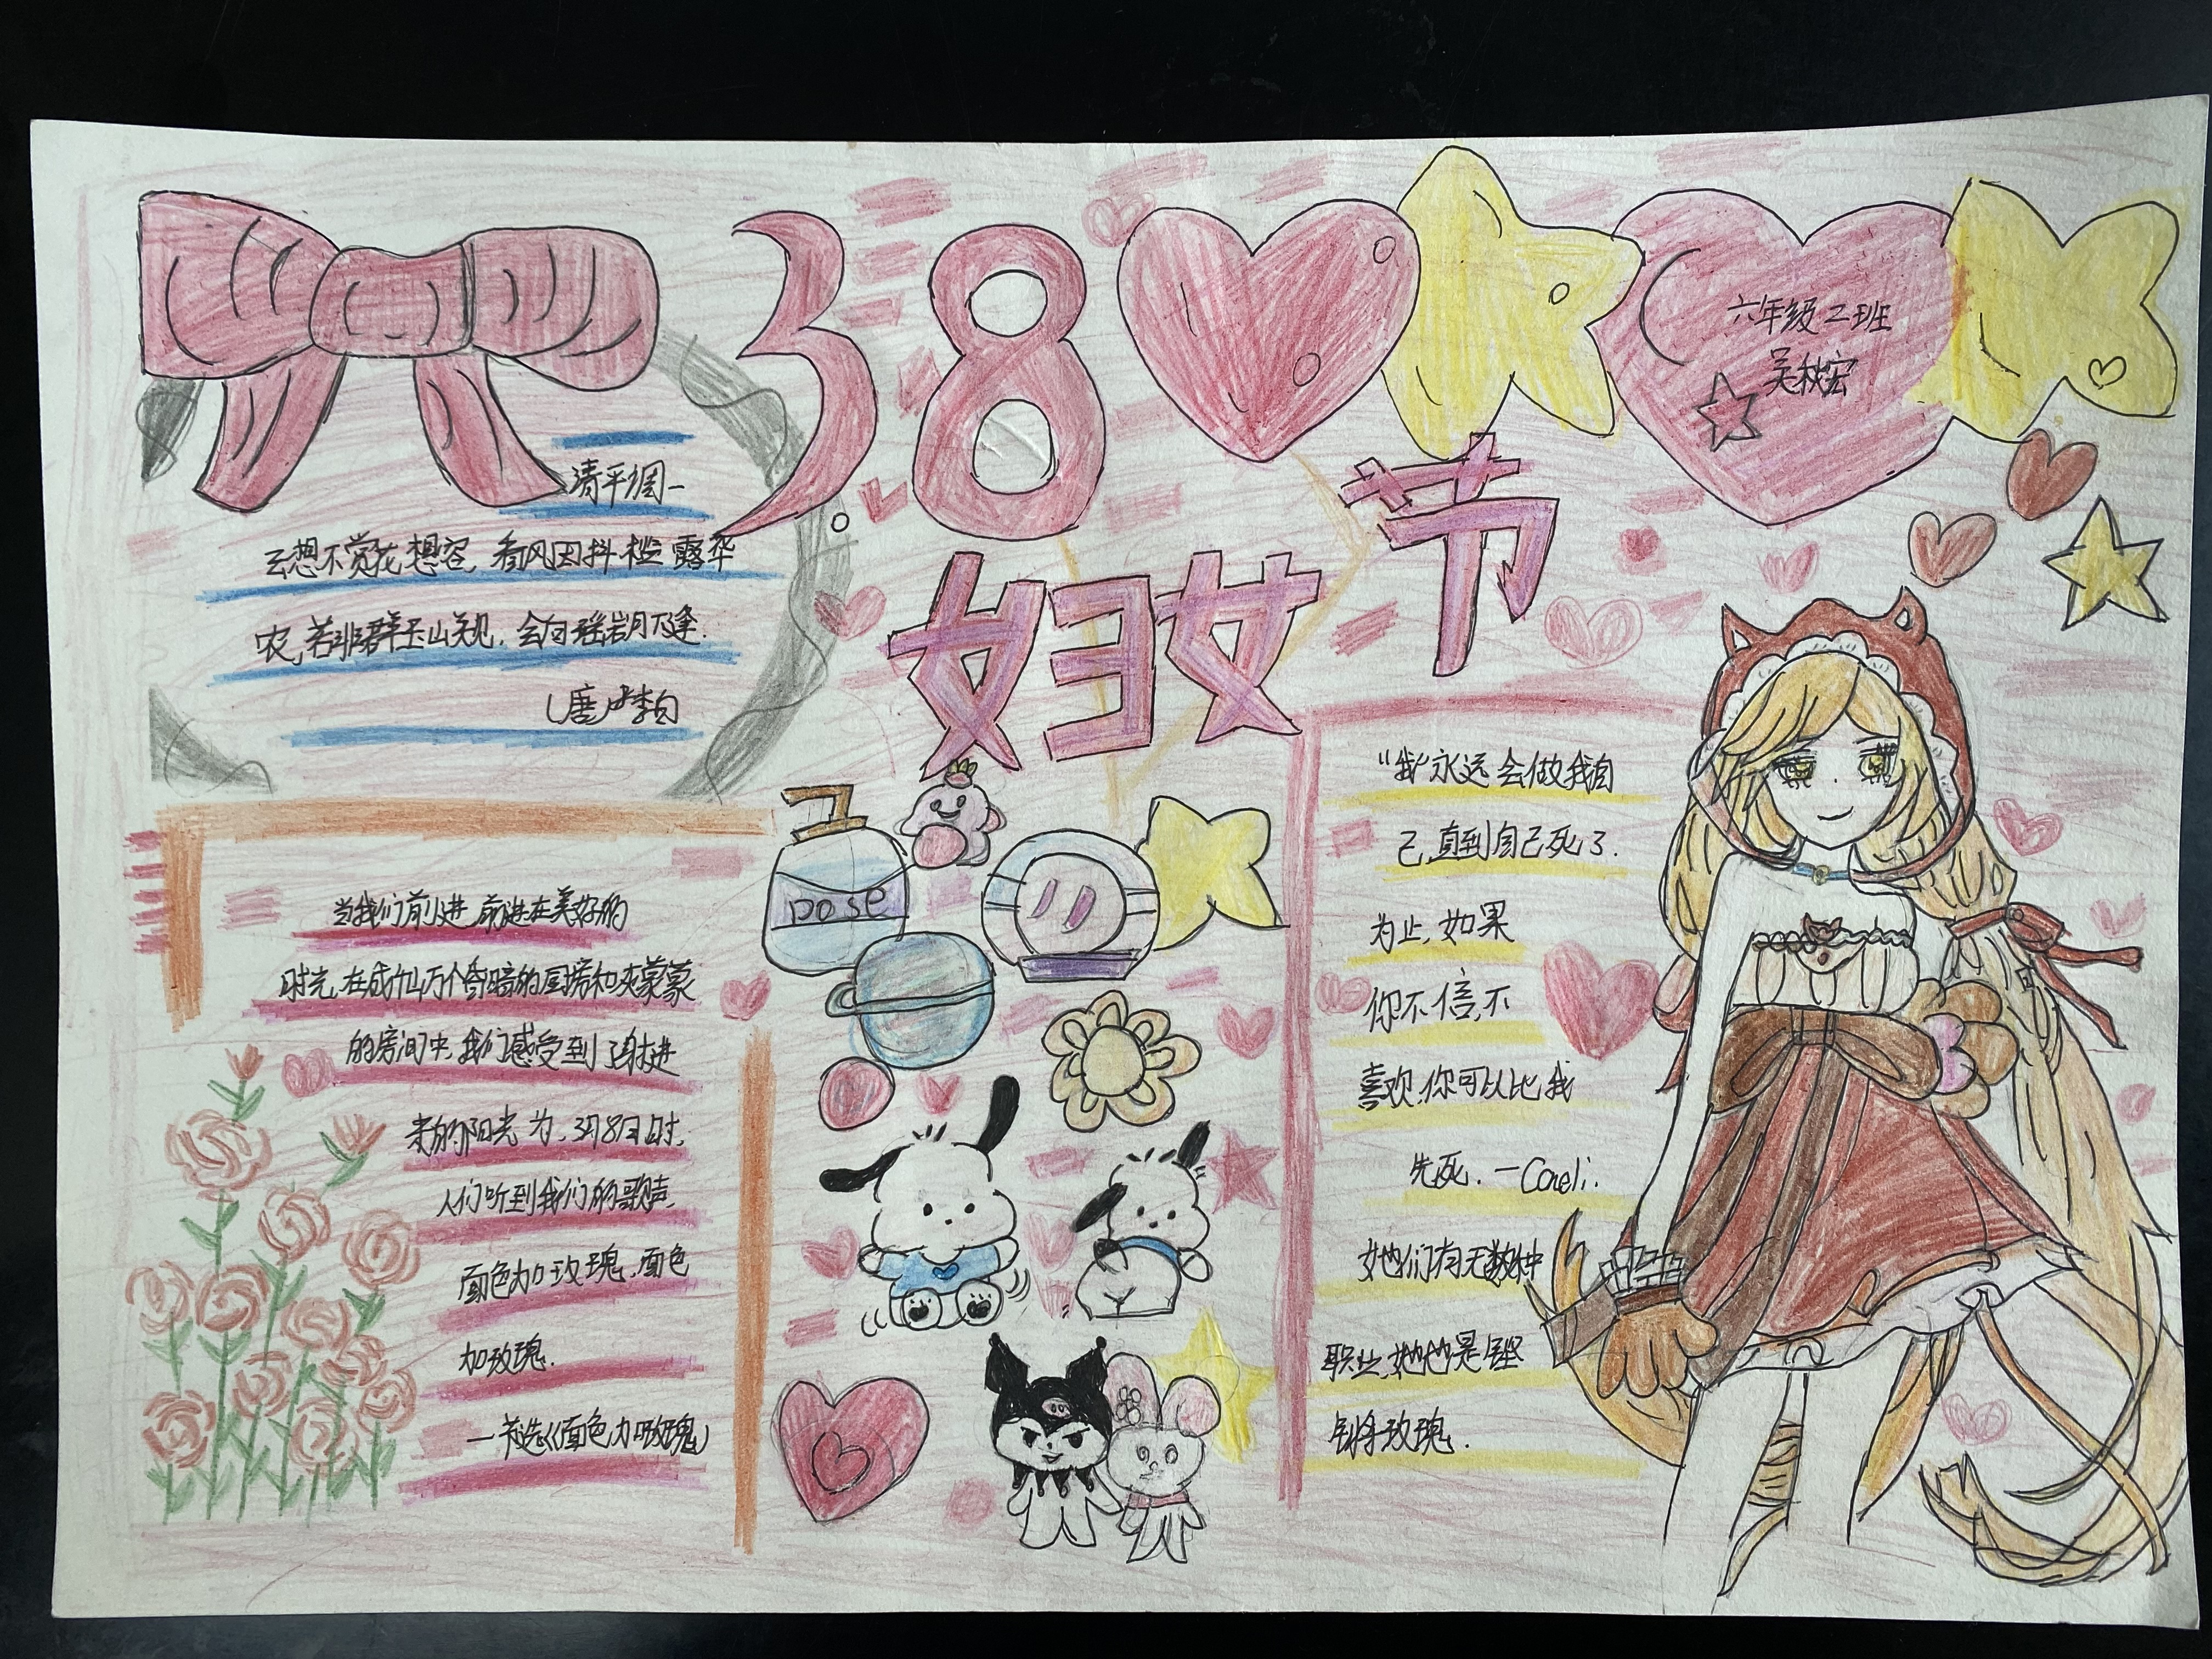 38
妇女节
六年级二班
吴秋宏
清平调一
云想不赏花想容,春风因抖槛露华
农,若非群玉山关见,会向瑶岩月下逢.
(唐)李白
当我们前进,前进在美好的
时光,在成仙万个昏暗的厨房和灰蒙蒙
的房间中,我们感受到了射进
来的阳光为,3月8日时,
人们听到我们的歌声.
面色加玫瑰,面色
加玫瑰.
一节选《面色加玫瑰》
Dose
"我"永远会做我自
己,直到自己死了.
为止,如果
你不信,不
喜欢,你可以比我
先死. —Coneli.
她们有无数种
职业,她她是铿
锵玫瑰.